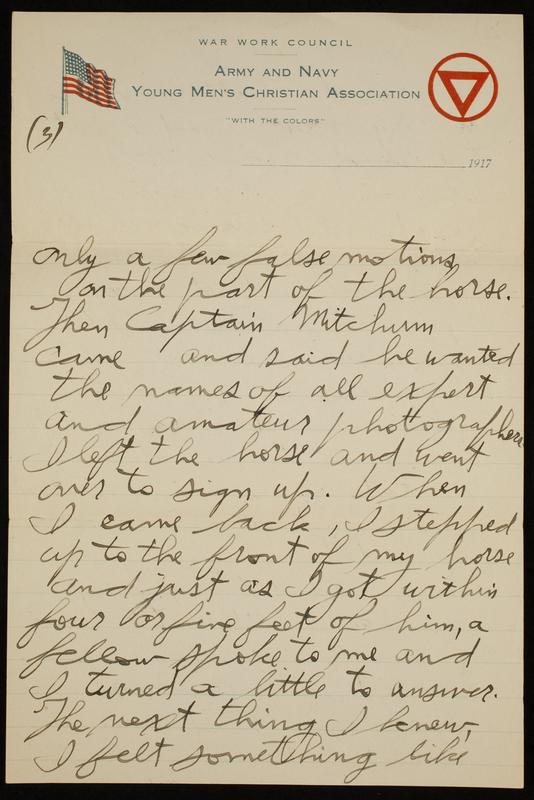 WAR WORK COUNCIL
ARMY AND NAVY
YOUNG MEN'S CHRISTIAN ASSOCIATION
"WITH THE COLORS"
(3)
1917
only a few false motions
on the part of the horse.
Then Captain Mitchum
came and said he wanted
the names of all expert
and amateur photographers
I left the horse and went
over to sign up. When
I came back, I stepped
up to the front of my horse
and just as I got within
four or five feet of him, a
fellow spoke to me and
I turned a little to answer.
The next thing I knew,
I felt something like